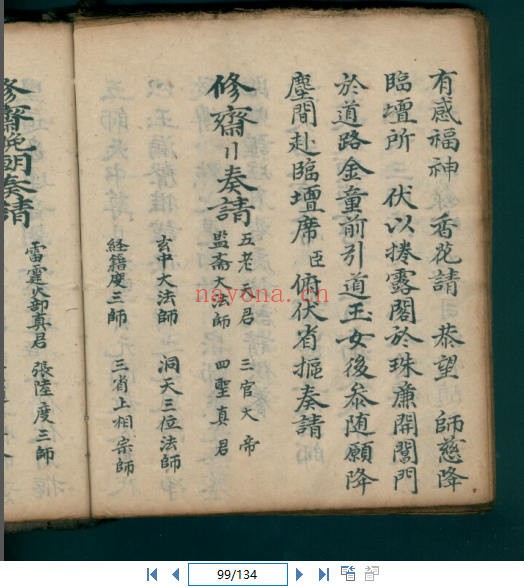 有感福神 香花請 恭望 師慈降
臨壇所 伏以捲露閣於珠廉開閶門
於道路金童前引道玉女後参随願降
塵間赴臨壇席 臣 俯伏省摳奏請
修齋〢奏請
五老天君 三官大帝
监斋大法師 四聖真君
玄中大法師 洞天三位法師
经籍度三師 三省上相宗師
雷霆火部真君 張陸度三師
修齋 奏請
nayona.cn
99/134